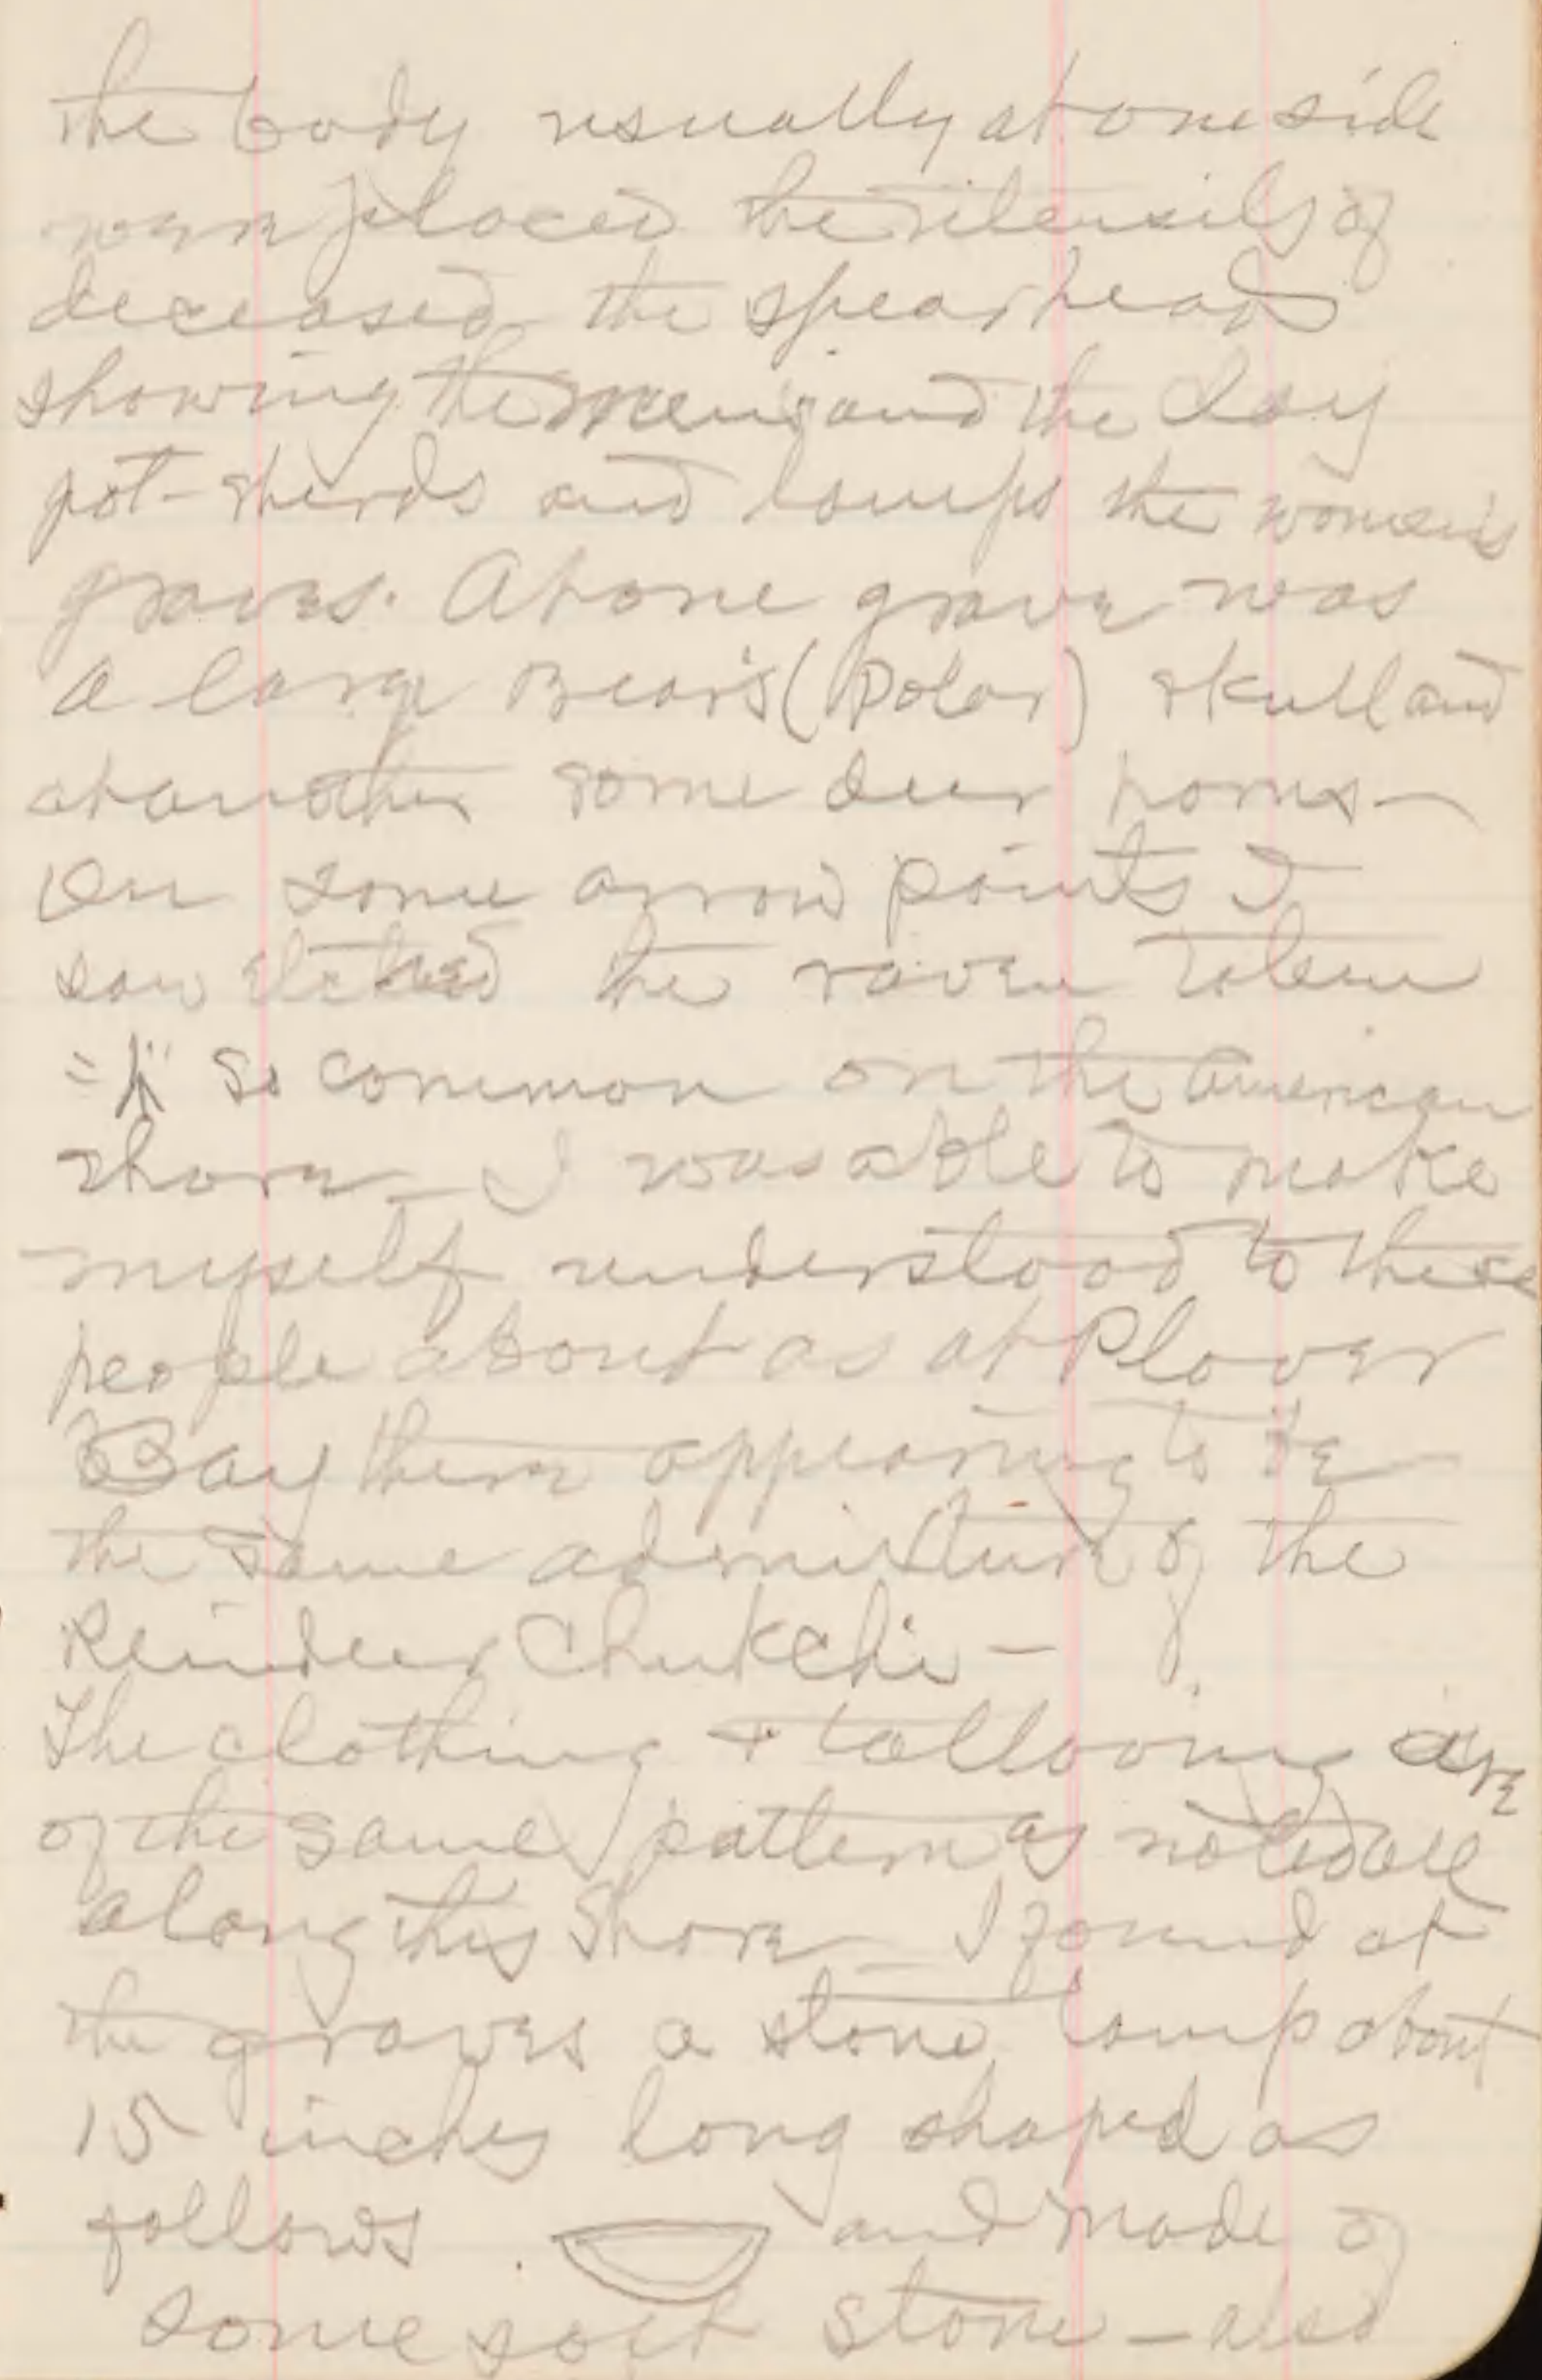 the body usually at one side
were placed the utensils of
deceased the spear heads
showing the men's and the clay
pot-sherds and lamps the women's
graves. At one grave was
a large Bear's (Polar) skull and
at another some deer horns—
On some arrow points I
saw etched the raven totem
= so common on the American
shore— I was able to make
myself understood to these
people about as at Plover
Bay there appearing to be
the same admixture of the
Reindeer Chukchi—
The clothing + tattooing are
of the same pattern as noted all
along this Shore— I found at
the graves a stone lamp about
15 inches long shaped as
follows and made of
some soft stone— also